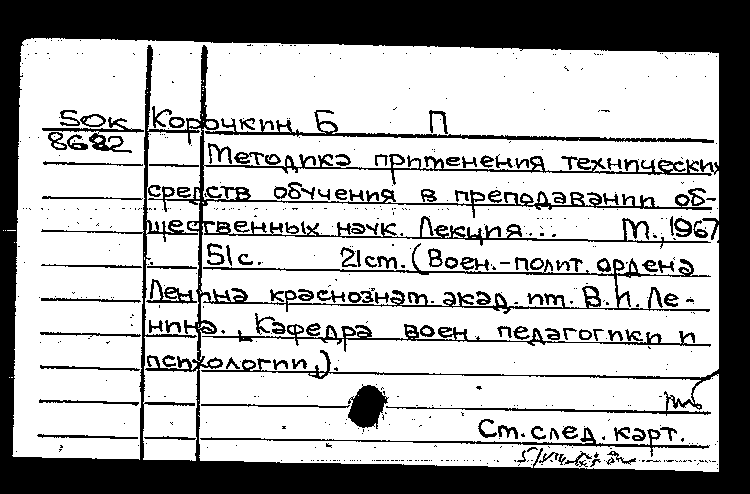 50к Корочкин, Б П
8682
Методика применения технических
средств обучения в преподавании об-
щественных наук. Лекция... М., 1967
51с. 21см. (Воен.-полит. ордена
Ленина краснознам. акад. им. В.И. Ле-
нина. Кафедра воен. педагогики и
психологии).
См. след. карт.